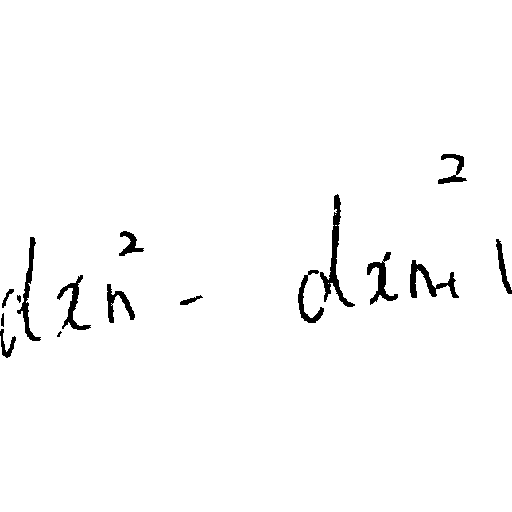 dxn² - dxn+1²